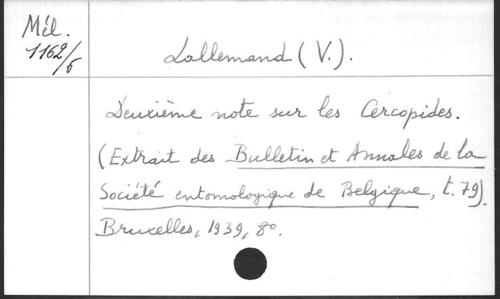 Mél.
1162/6
Lallemand (V.).
Deuxième note sur les Cercopides.
(Extrait des Bulletin et Annales de la
Société entomologique de Belgique, t. 79).
Bruxelles, 1939, 8º.